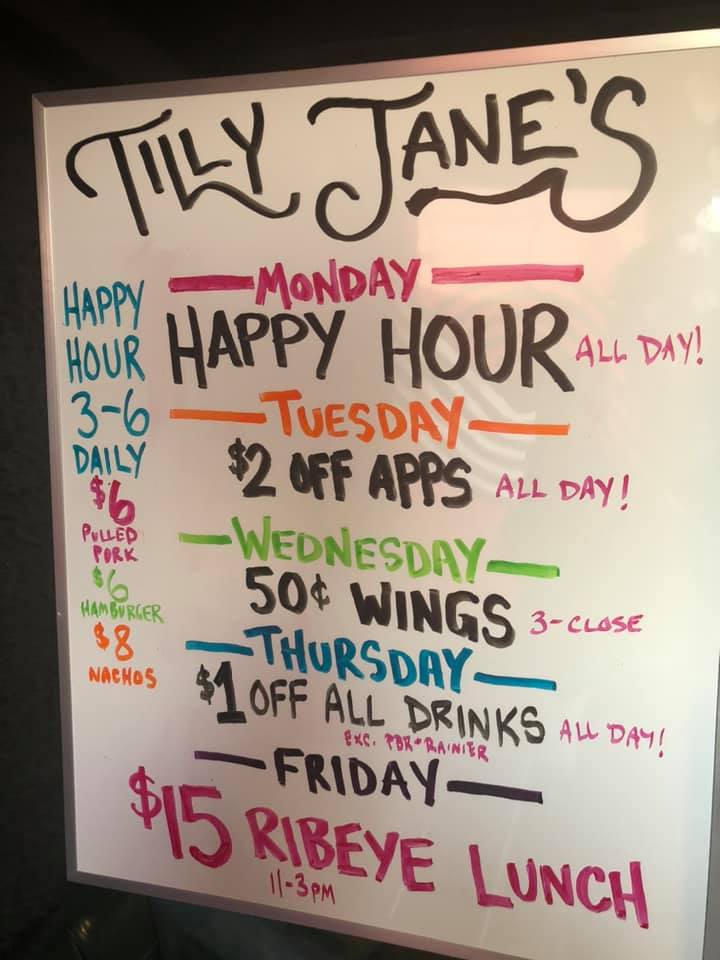 TILLY JANE'S
HAPPY
HOUR
3-6
DAILY
$6
PULLED
PORK
$6
HAMBURGER
$8
NACHOS
MONDAY
HAPPY HOUR ALL DAY!
TUESDAY
$2 OFF APPS ALL DAY!
WEDNESDAY
50¢ WINGS 3-CLOSE
THURSDAY
$1 OFF ALL DRINKS ALL DAY!
EXC. PBR + RAINIER
FRIDAY
$15 RIBEYE LUNCH
11-3PM